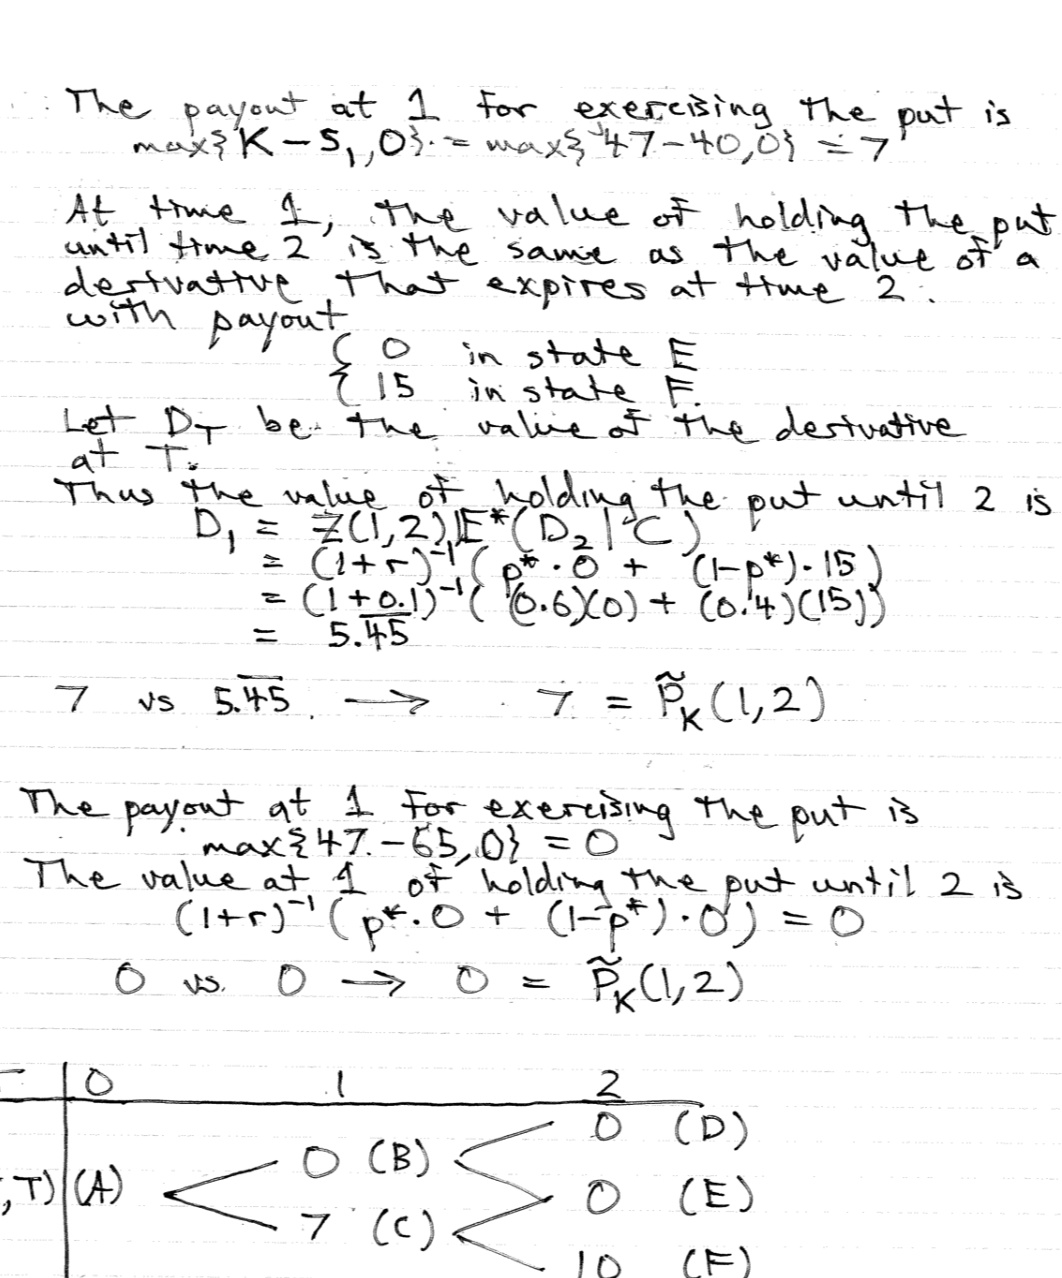 The payout at 1 for exercising the put is
max{K-S₁,0} = max{47-40,0} = 7
At time 1, the value of holding the put
until time 2 is the same as the value of a
derivative that expires at time 2.
with payout
{ 0 in state E
{ 15 in state F.
Let D_T be the value of the derivative
at T.
Thus the value of holding the put until 2 is
D₁ = Z(1,2) E*(D₂ | C)
= (1+r)⁻¹ (p*·0 + (1-p*)·15)
= (1+0.1)⁻¹ ((0.6)(0) + (0.4)(15))
= 5.4̅5̅
7 vs 5.4̅5̅. → 7 = P̃_K(1,2)
The payout at 1 for exercising the put is
max{47-65,0} = 0
The value at 1 of holding the put until 2 is
(1+r)⁻¹ (p*·0 + (1-p*)·0) = 0
0 vs. 0 → 0 = P̃_K(1,2)
0 1 2
0 (D)
0 (B)
,T) (A) 0 (E)
7 (C)
10 (F)